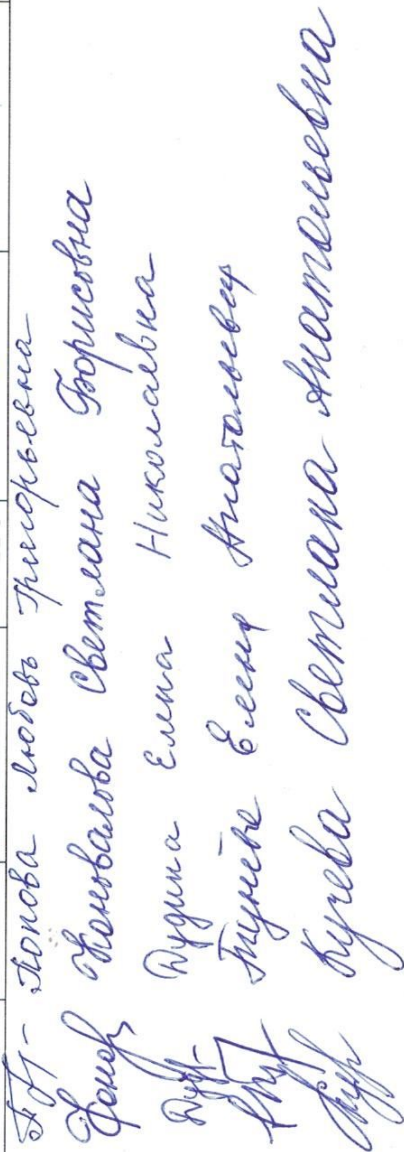 Попова Любовь Григорьевна
Коновалова Светлана Борисовна
Дудина Елена Николаевна
Елена Анатольевн
Кучева Светлана Анатольевна